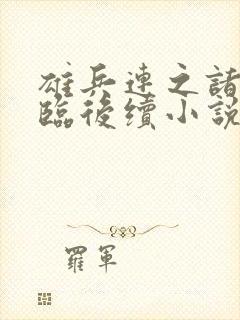 雄兵連之諸
臨後續小說
羅軍